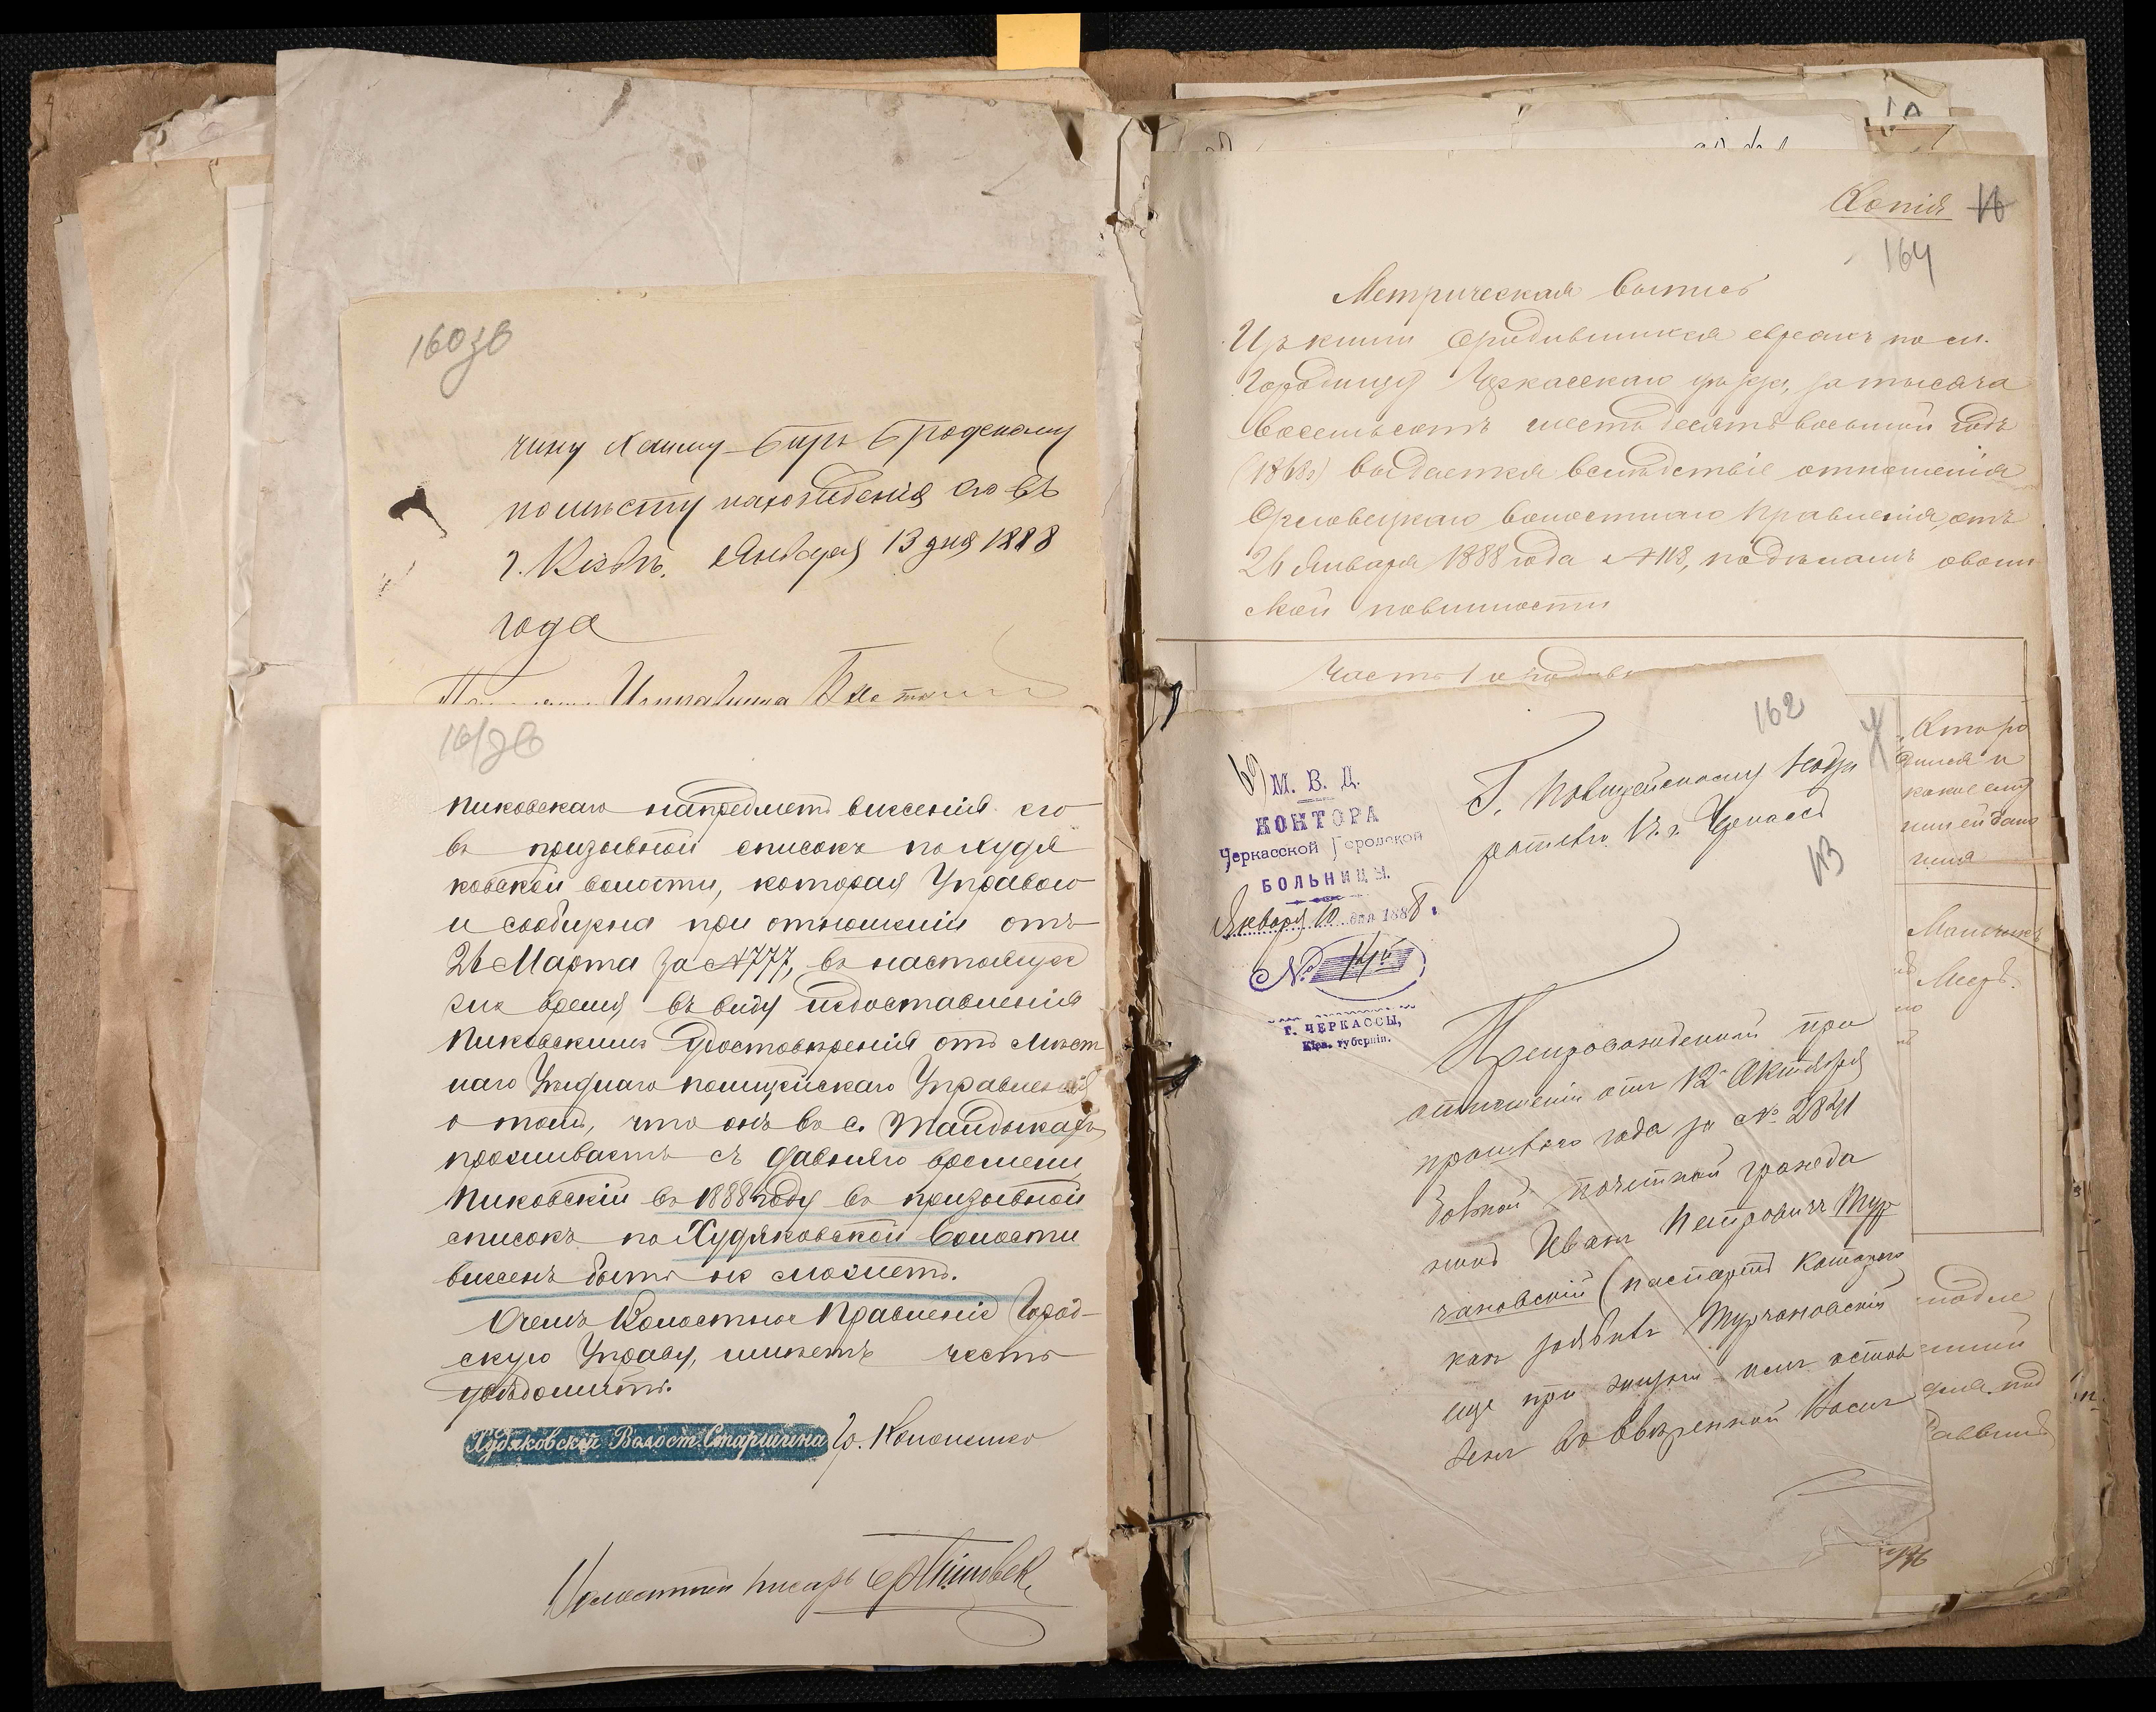 160 зв
чину Хаиму-Беру Бродскому
по месту нахождения его въ
г. Кіевъ. Января 13 дня 1888
года
Исправника
161 зв
Пиковскаго на предметъ внесенія его
въ призывной списокъ по Худя
ковской волости, которая Управою
и сообщена при отношеніи отъ
26 Марта за №777, въ настоящее
же время въ виду недоставленія
Пиковскимъ удостоверенія отъ Мѣст
наго Уѣзднаго Полицейскаго Управленія
о томъ, что онъ въ с. Талдыкахъ
проживаетъ съ давняго времени
Пиковскій въ 1888 году въ призывной
списокъ по Худяковской волости
внесенъ быть не можетъ.
О чемъ Волостное Правленіе Город-
скую Управу, имѣетъ честь
увѣдомить.
Худяковскій Волост. Старшина Гр. Кононенко
Волостной писарь
Копія
164
Метрическая выпись
Изъ книги о родившихся евреяхъ по м.
Городищу Черкасскаго уѣзда, за тысяча
восемьсотъ шестьдесятъ восьмой годъ
(1868) выдается вслѣдствіе отношенія
Орловецкаго волостнаго Правленія, отъ
26 Января 1888 года №118, по дѣламъ о воин
ской повинности
Часть 1 о родивш
Кто ро
дился и
какое ему
или ей дано
имя
Мальчикъ
Мееръ.
162
М. В. Д.
КОНТОРА
Черкасской Городской
БОЛЬНИЦЫ.
Января 10 дня 1888 г.
№ 14
Г. ЧЕРКАССЫ,
Кіев. губерніи.
Г. Полицейскому Надзи
рателю г. Черкассъ
Препровожденный при
отношеніи отъ 12 Октября
прошлаго года за № 2841
почетный гражда
нинъ Иванъ Петровичъ Тур
чановскій (паспортъ котораго
какъ заявилъ Турчановскій
еще при жизни имъ остав
ленъ во ввѣренной Вами